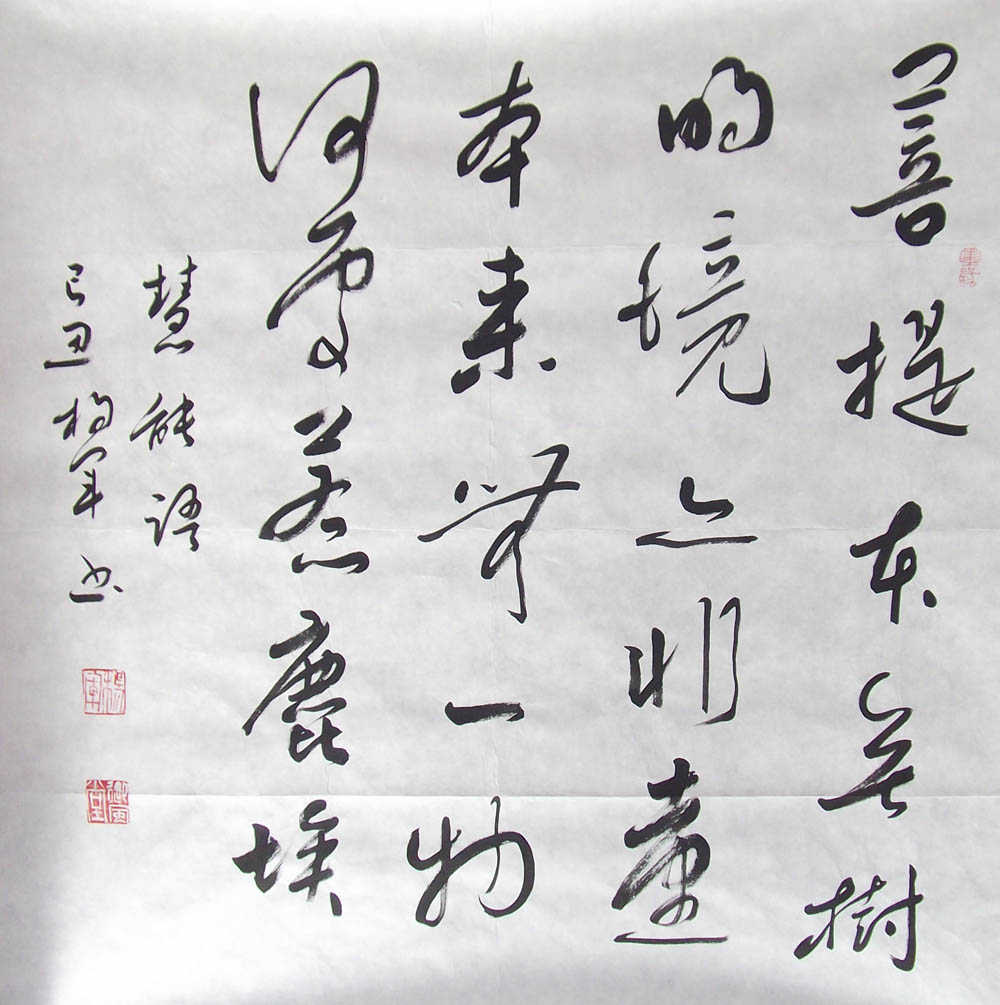 菩提本無樹
明鏡亦非臺
本來無一物
何處惹塵埃
慧能語
己丑楊軍書
楊軍